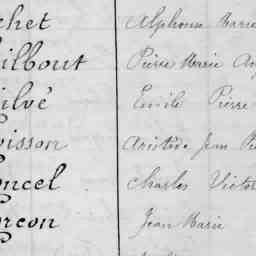 chet Alphonse Marie
ilbout Pierre Marie Aug
ilvé Emile Pierre
oisson Aristide Jean Pi
oncel Charles Victor
orcon Jean Marie